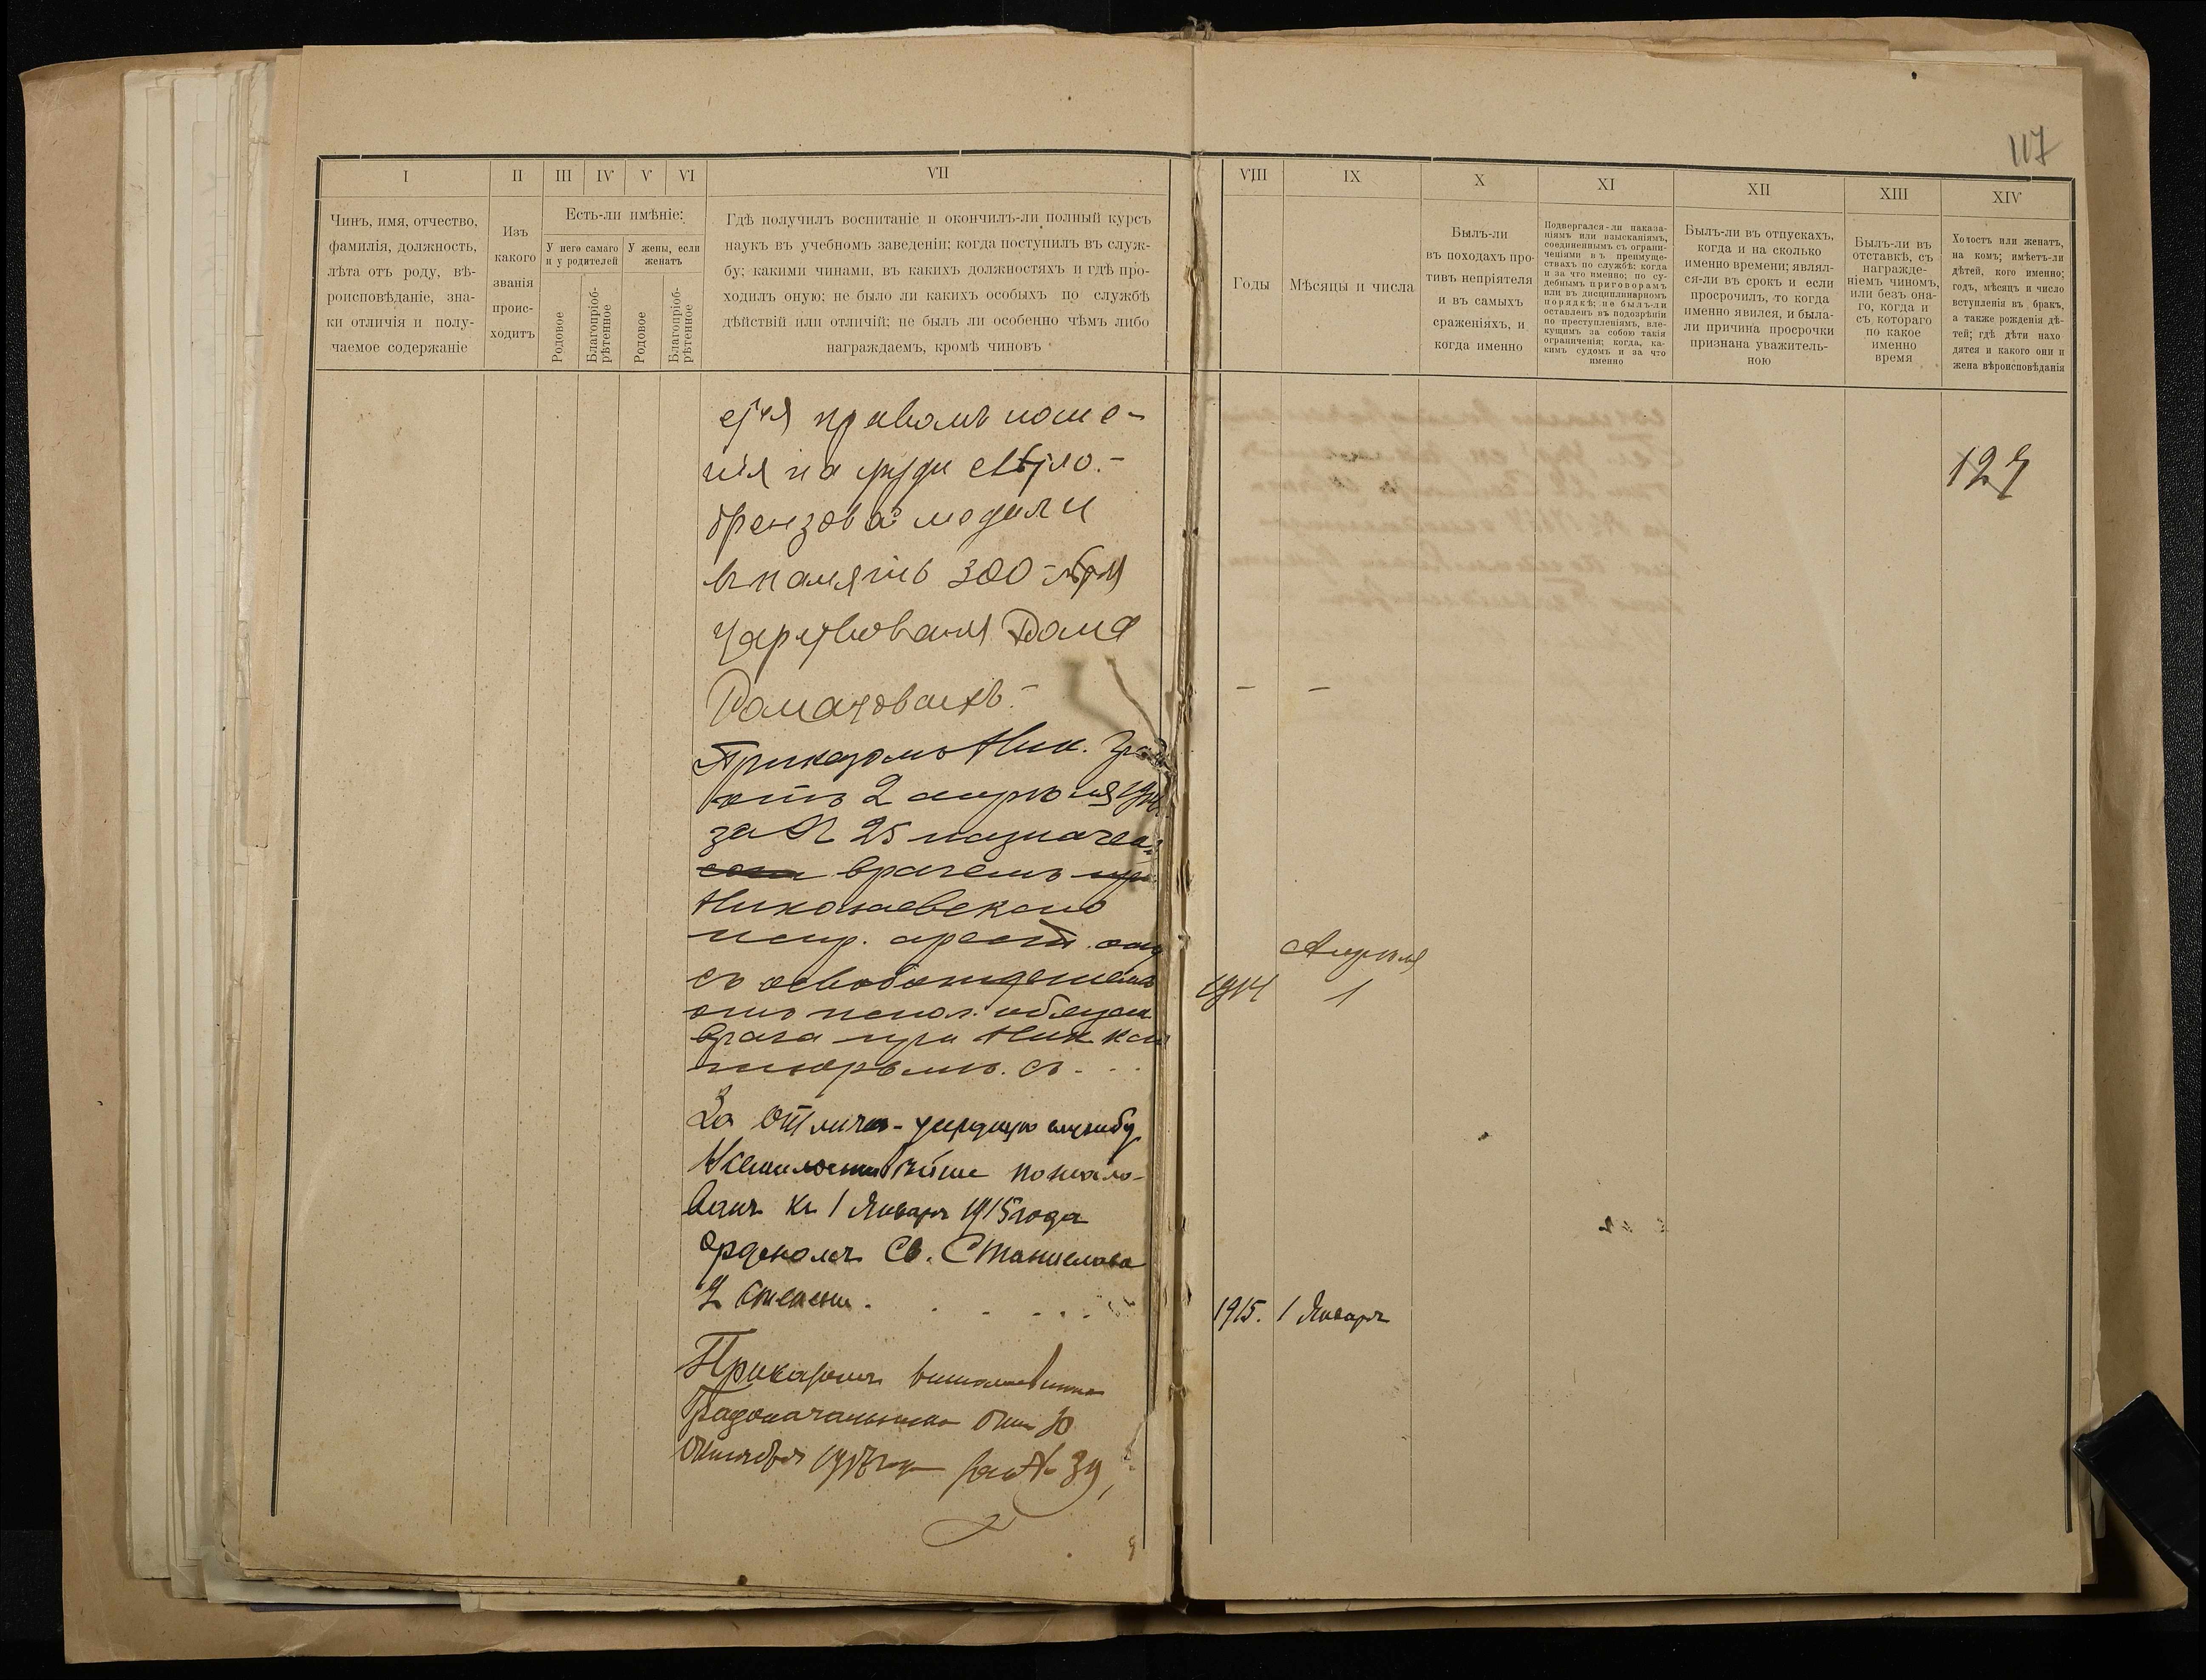 117
I II III IV V VI VII VIII IX X XI XII XIII XIV
Чинъ, имя, отчество,
фамилія, должность,
лѣта отъ роду, вѣ-
роисповѣданіе, зна-
ки отличія и полу-
чаемое содержаніе
Изъ
какого
званія
проис-
ходитъ
Есть-ли имѣніе:
У него самаго
и у родителей
У жены, если
женатъ
Родовое
Благопріоб-
рѣтенное
Родовое
Благопріоб-
рѣтенное
Гдѣ получилъ воспитаніе и окончилъ-ли полный курсъ
наукъ въ учебномъ заведеніи; когда поступилъ въ служ-
бу; какими чинами, въ какихъ должностяхъ и гдѣ про-
ходилъ оную; не было ли какихъ особыхъ по службѣ
дѣйствій или отличій; не былъ ли особенно чѣмъ либо
награждаемъ, кромѣ чиновъ
Годы
Мѣсяцы и числа
Былъ-ли
въ походахъ про-
тивъ непріятеля
и въ самыхъ
сраженіяхъ, и
когда именно
Подвергался-ли наказа-
ніямъ или взысканіямъ,
соединеннымъ съ ограни-
ченіями въ преимуще-
ствахъ по службѣ; когда
и за что именно; по су-
дебнымъ приговорамъ
или въ дисциплинарномъ
порядкѣ; не былъ-ли
оставленъ въ подозрѣніи
по преступленіямъ, вле-
кущимъ за собою такія
ограниченія; когда, ка-
кимъ судомъ и за что
именно
Былъ-ли въ отпускахъ,
когда и на сколько
именно времени; являл-
ся-ли въ срокъ и если
просрочилъ, то когда
именно явился, и была-
ли причина просрочки
признана уважитель-
ною
Былъ-ли въ
отставкѣ, съ
награжде-
ніемъ чиномъ,
или безъ она-
го, когда и
съ котораго
по какое
именно
время
Холостъ или женатъ,
на комъ; имѣетъ-ли
дѣтей, кого именно;
годъ, мѣсяцъ и число
вступленія въ бракъ,
а также рожденія дѣ-
тей; гдѣ дѣти нахо-
дятся и какого они и
жена вѣроисповѣданія
127
правомъ ноше-
нія на груди свѣтло-
бронзовой медали
въ память 300-лѣтія
царствованія Дома
Романовыхъ. — —
Приказомъ Ник. Град
отъ 2 апрѣля 1914
за № 25 назначен
врачемъ при
Николаевскаго
испр. арест. отд
съ освобожденіемъ
отъ испол. обязан
врача при Ник. ка
тюрьмѣ. съ . . .
Апрѣля
1914 1
За Отлично-усердную службу
Всемилостивѣйше пожало-
ванъ къ 1 Января 1915 года
орденомъ Св. Станислава
2 степени. . . . . .
1915. 1 Января
Приказомъ
Градоначальника отъ 30
Октября года за № 39,